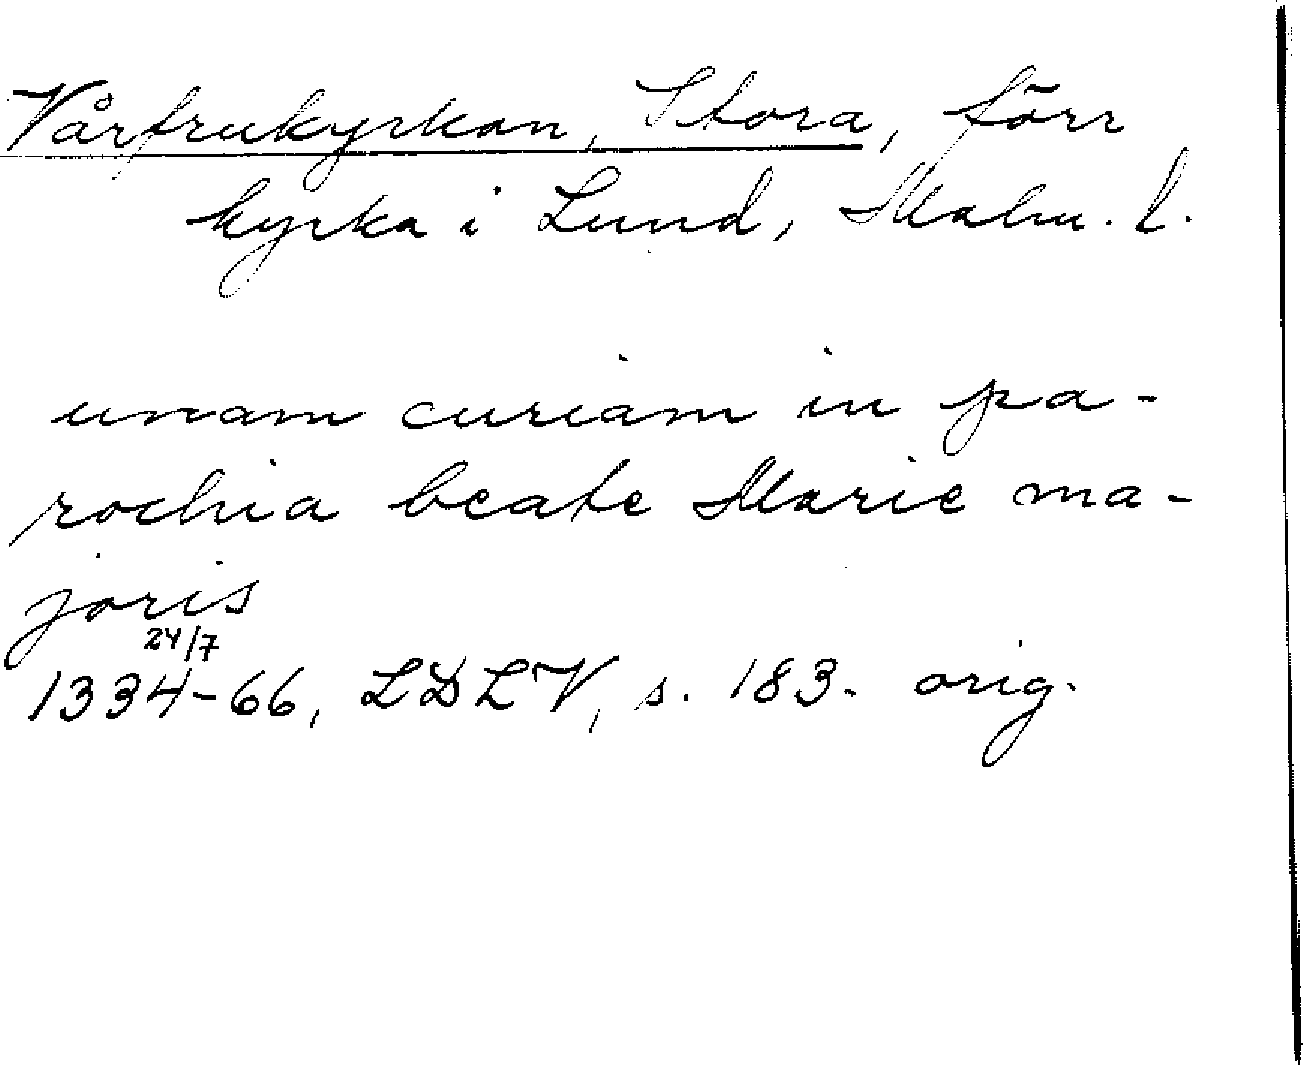 Vårfrukyrkan, Stora, förr
kyrka i Lund, Malm. l.
unam curiam in pa-
rochia beate Marie ma-
joris
24/7
1334-66, LDLV, s. 183. orig.